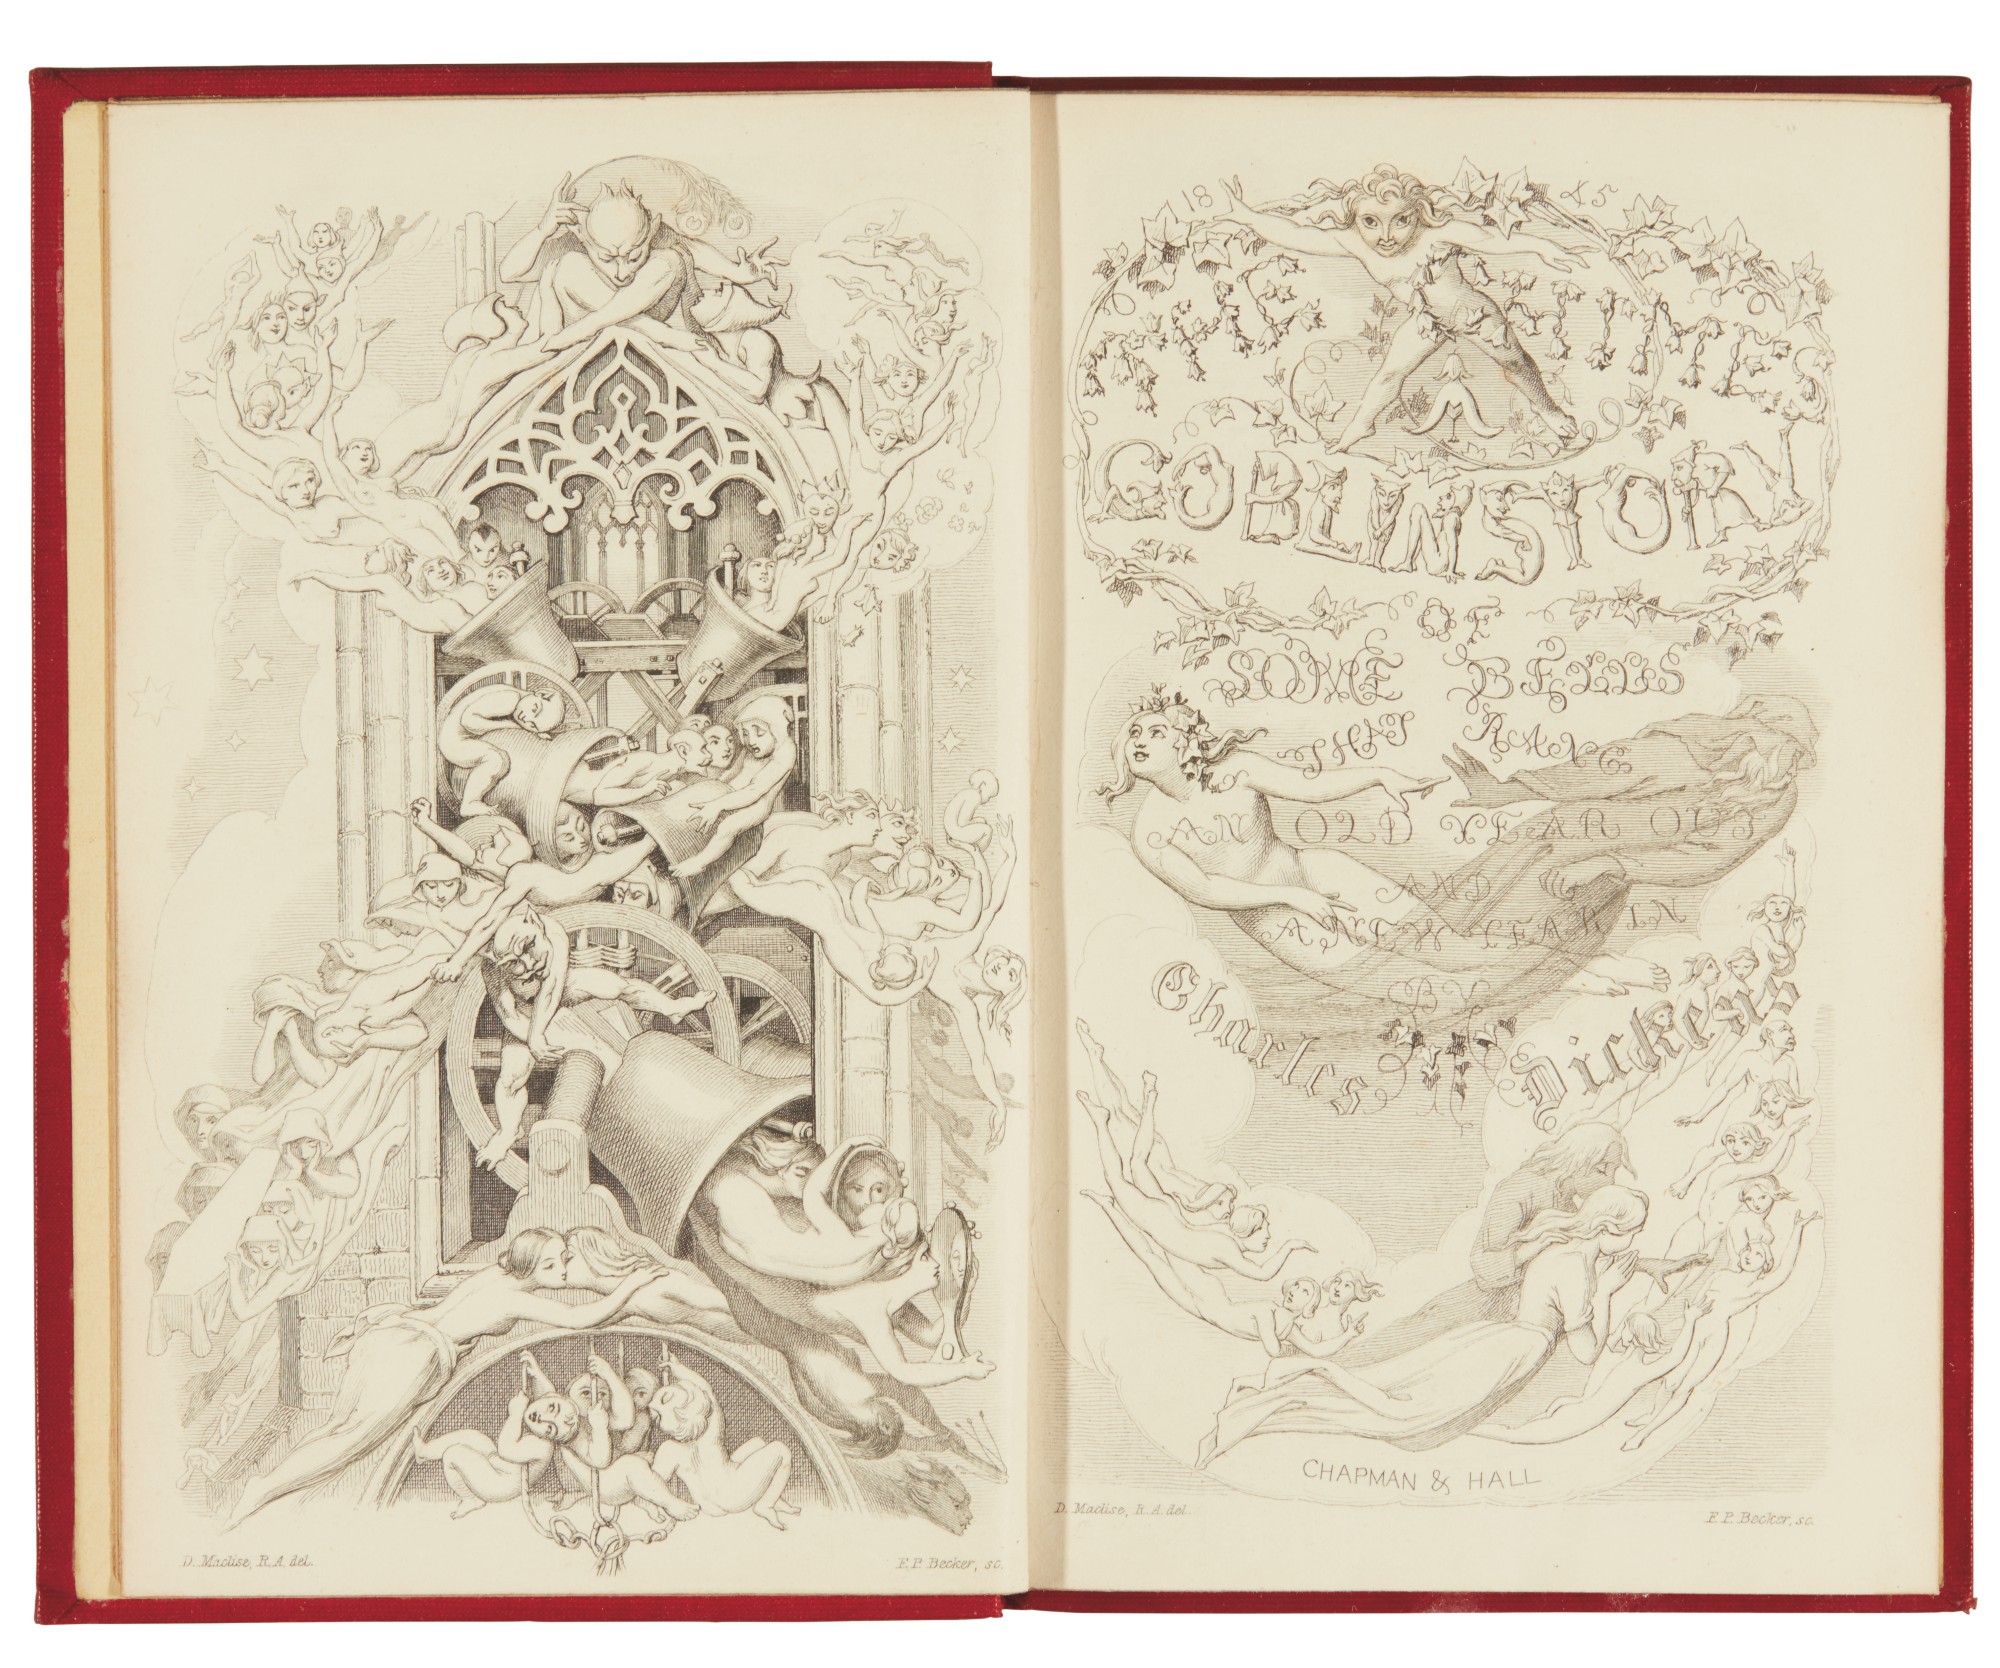 D. Maclise, R.A. del.
F. P. Becker, sc.
18 45
THE CHIMES
A
GOBLIN STORY
OF
SOME BELLS
THAT RANG
AN OLD YEAR OUT
AND
A NEW YEAR IN
BY
Charles Dickens
CHAPMAN & HALL
D. Maclise, R.A. del.
F. P. Becker, sc.